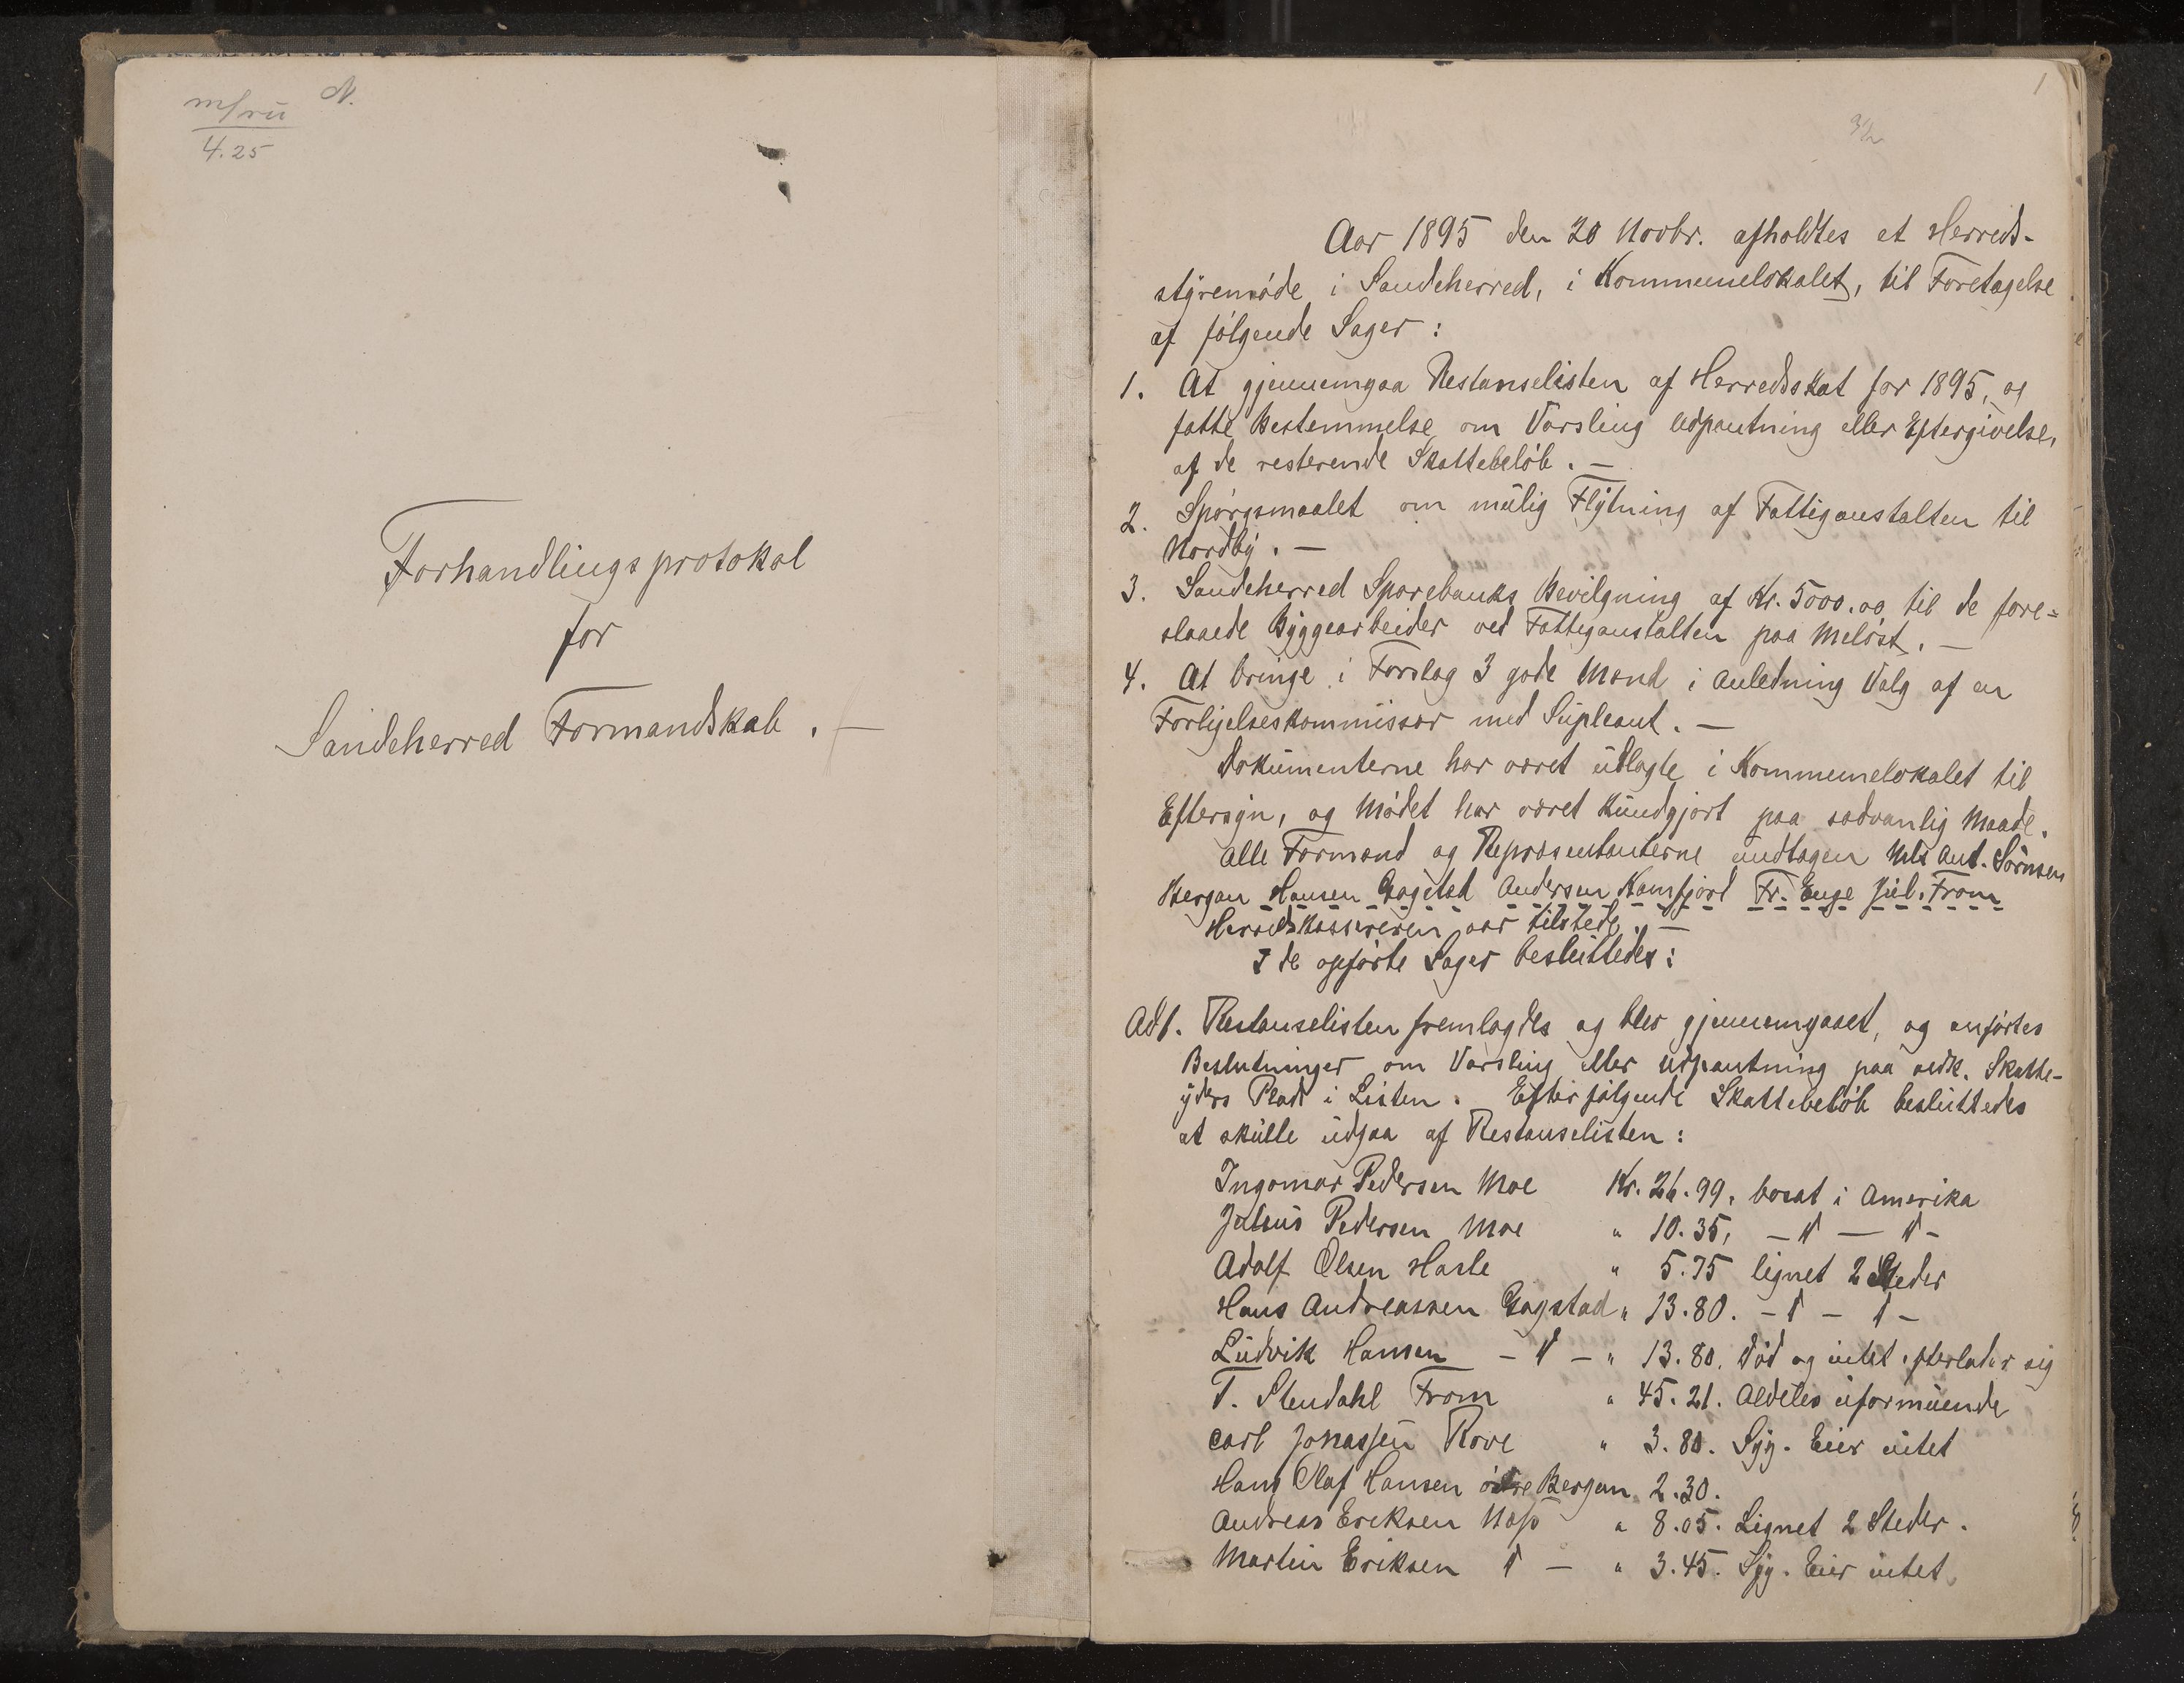 m/rü N.
4.25
Forhandlingsprotokol
for
Sandeherred Formandskab. —
1
Aar 1895 den 20 Novbr. afholdtes et Herreds-
styremøde i Sandeherred, i Kommunelokalet, til Foretagelse
af følgende Sager:
1. At gjennemgaa Restanselisten af Herredsskat for 1895, og
fatte Bestemmelse om Varsling Udpantning eller Eftergivelse,
af de resterende Skattebeløb. —
2. Spørgsmaalet om mulig Flytning af Fattiganstalten til
Nordby. —
3. Sandeherred Sparebanks Bevilgning af Kr. 5000.00 til de fore=
slaaede Byggearbeider ved Fattiganstalten paa Meløst. —
4. At bringe i Forslag 3 gode Mænd i Anledning Valg af en
Forligelseskommissær med Supleant. —
Dokumenterne har været udlagte i Kommunelokalet til
Eftersyn, og Mødet har været kundgjort paa sædvanlig Maade.
Alle Formænd og Repræsentanterne undtagen Nils Ant. Sørnsen
Bergan Hansen Gogstad Andersen Kamfjord Fr. Enge Jul. From
Herredskassereren var tilstede. —
I de opførte Sager besluttedes:
Ad 1. Restanselisten fremlagdes og blev gjennemgaaet, og anførtes
Beslutninger om Varsling eller Udpantning paa vedk. Skatte-
yders Plads i Listen. Efterfølgende Skattebeløb besluttedes
at skulle udgaa af Restanselisten:
Ingomar Pedersen Moe Kr. 26.99. bosat i Amerika
Julius Pedersen Moe " 10.35, — " — " —
Adolf Olsen Hasle " 5.75 lignet 2 Steder
Hans Andreassen Gogstad " 13.80. — " — " —
Ludvik Hansen — " — " 13.80. Død og intet efterlader sig
T. Stendahl From " 45.21. Aldeles uformuende
Carl Jonassen Rove " 3.80. Syg. Eier intet
Hans Olaf Hansen østre Bergan " 2.30.
Andreas Eriksen Nøss " 8.05. Lignet 2 Steder.
Martin Eriksen " — " 3.45. Syg. Eier intet.